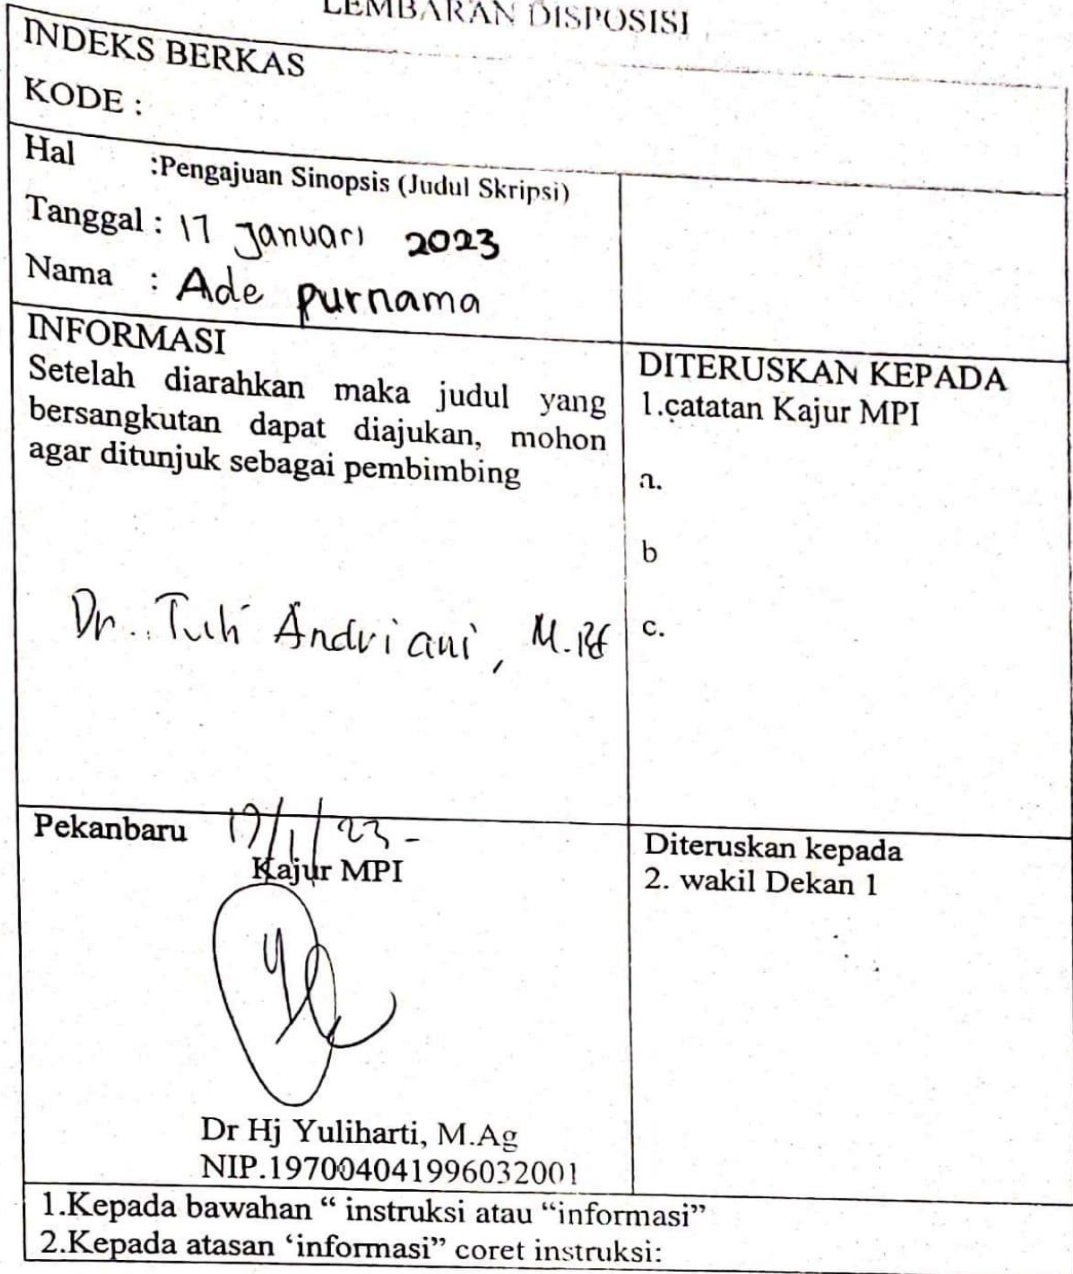 LEMBARAN DISPOSISI
INDEKS BERKAS
KODE :
Hal :Pengajuan Sinopsis (Judul Skripsi)
Tanggal : 17 Januari 2023
Nama : Ade purnama
INFORMASI
Setelah diarahkan maka judul yang
bersangkutan dapat diajukan, mohon
agar ditunjuk sebagai pembimbing
Dr. Tuti Andriani, M.Pd
DITERUSKAN KEPADA
1.catatan Kajur MPI
a.
b
c.
Pekanbaru 17/1/23 -
Kajur MPI
Dr Hj Yuliharti, M.Ag
NIP.197004041996032001
Diteruskan kepada
2. wakil Dekan 1
1.Kepada bawahan “ instruksi atau “informasi”
2.Kepada atasan ‘informasi” coret instruksi: